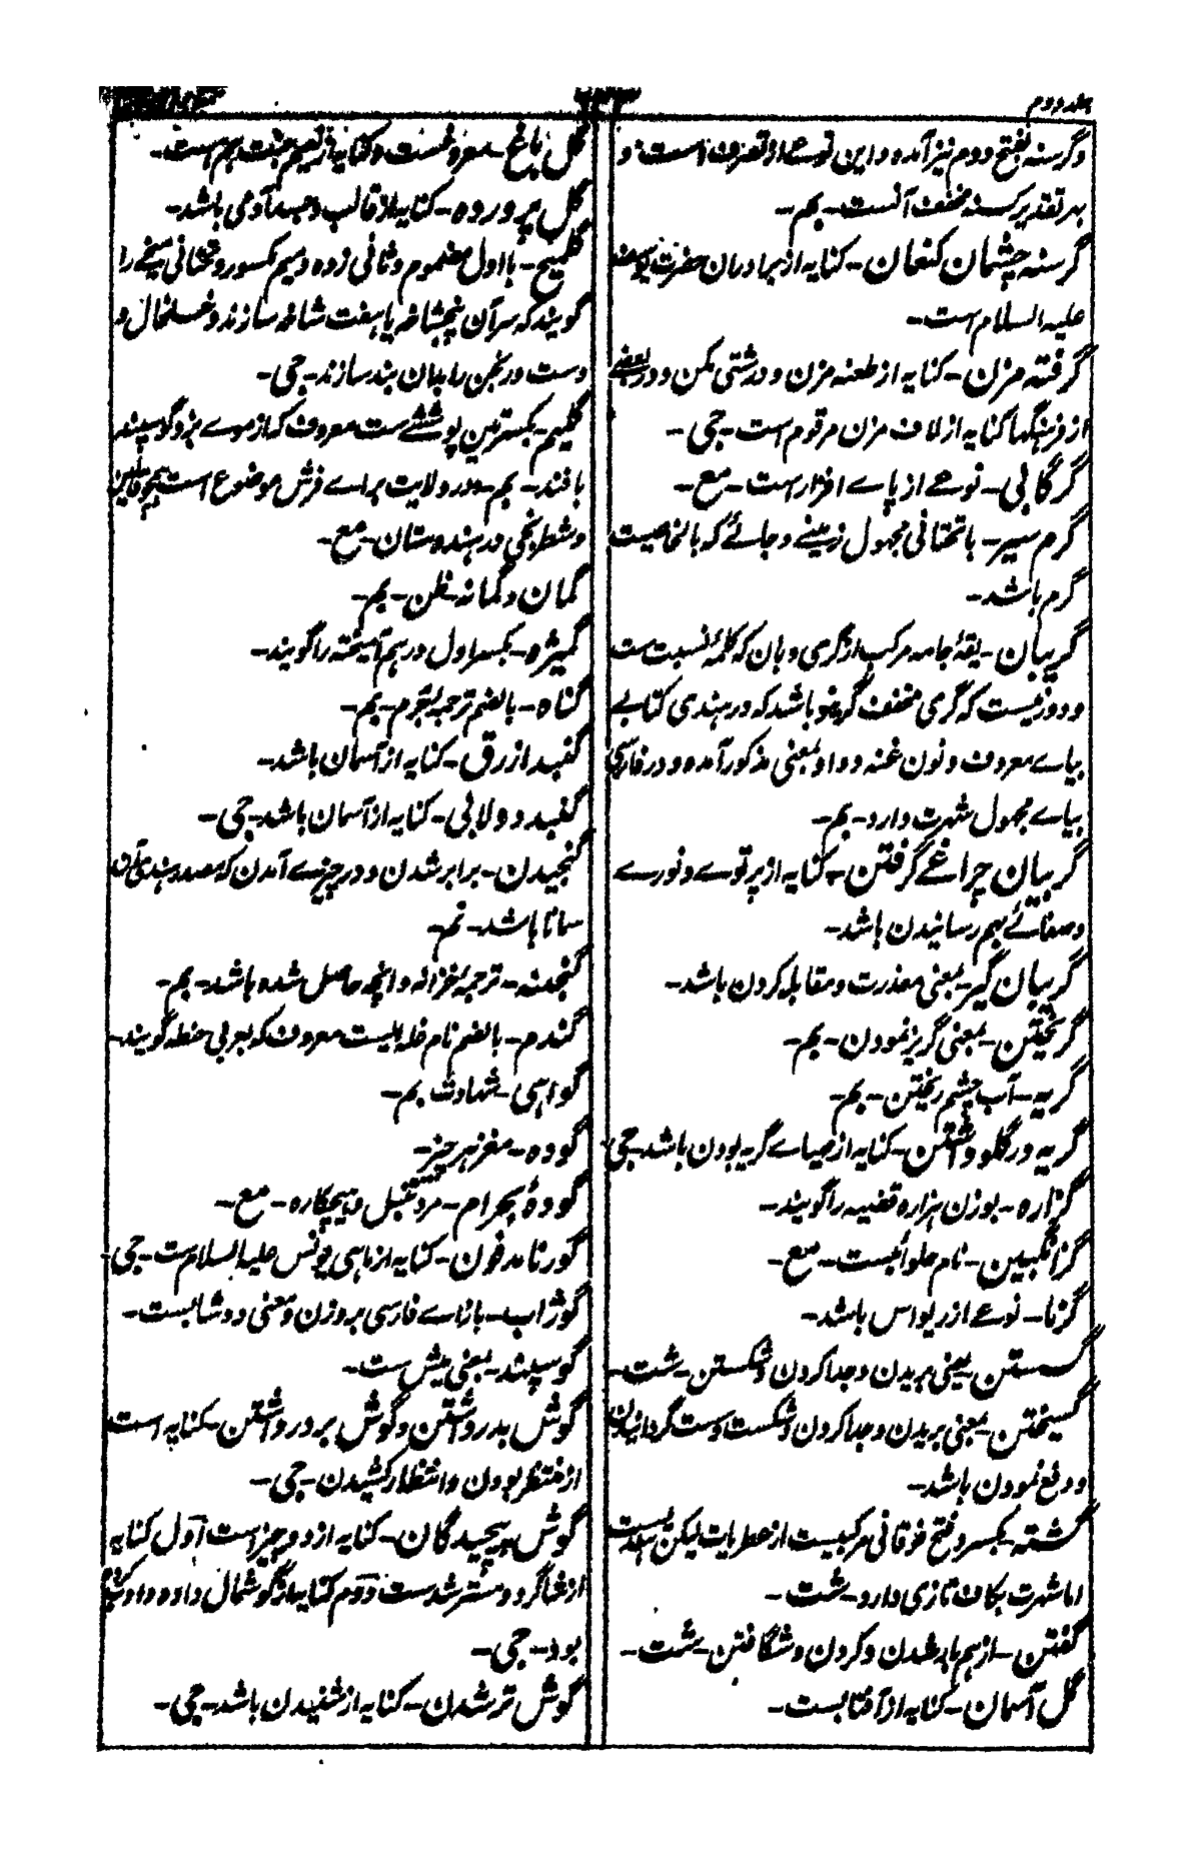 جلد دوم
۲۳۳
وگرسنہ بفتح دوم نیز آمدہ و این نوعے از تصرف است و
بہر تقدیر کسنہ مخفف آنست - بم -
گرسنہ چشمان کنعان - کنایہ از برادران حضرت یوسف
علیہ السلام است -
گرفتہ مزن - کنایہ از طعنہ مزن و درشتی مکن و در بعضے
از فرہنگہا کنایہ از لاف مزن مرقوم است - جی -
گرگابی - نوعے از پاے افزار است - مع -
گرم سیر - با تحتانی مجہول زمینے و جائے کہ بالخاصیت
گرم باشد -
گریبان - یقۂ جامہ مرکب از گری و بان کہ کلمۂ نسبت ست
و دور نیست کہ گری مخفف گریو باشد کہ در ہندی کتابی
بیاے معروف و نون غنہ و واو بمعنی مذکور آمدہ و در فارسی
بیاے مجہول شہرت دارد - بم -
گریبان چراغے گرفتن - کنایہ از پرتوے و نورے
و صفائے بہم رسانیدن باشد -
گریبان گیر - بمعنی معذرت و مقابلہ کردن باشد -
گریختن - بمعنی گریز نمودن - بم -
گریہ - آب چشم ریختن - بم -
گریہ در گلو داشتن - کنایہ از مہیاے گریہ بودن باشد - جی
گزارہ - بوزن ہزارہ قضیہ را گویند -
گزانگبین - نام حلوائیست - مع -
گزنا - نوعے از ریواس باشد -
گسستن - یعنی بریدن و جدا کردن و شکستن - شت -
گسیختن - بمعنی بریدن و جدا کردن و شکست و ست گردانیدن
و دفع نمودن باشد -
گشتہ - بکسر و فتح فوقانی مرکبیست از عطریات لیکن
اما شہرت بکاف تازی دارد - شت -
گفتن - از ہم باز شدن و کردن و شگافتن - شت -
گل آسمان - کنایہ از آفتابست -
گل باغ - معروفست و کنایہ از نعیم جنت ہم است -
گل پرورده - کنایہ از قالب و جسد آدمی باشد -
گلمیخ - با اول مضموم و ثانی زدہ و میم مکسور و تحتانی میخے را
گویند کہ سر آن پنجشاخہ یا ہفت شاخہ سازند و خلخال و
دست ورنجن را بدان بند سازند - جی -
گلیم - بکسرتین پوششے ست معروف کہ از موے بز و گوسپند
بافند - بم - و در ولایت براے فرش موضوع است ہمچو قالین
و شطرنجی در ہندوستان - مع -
گمان و گمانہ - ظن - بم -
گمیژہ - بکسر اول درہم آمیختہ را گویند -
گناہ - بالضم ترجمۂ جرم - بم -
گنبد ازرق - کنایہ از آسمان باشد -
گنبد دولابی - کنایہ از آسمان باشد - جی -
گنجیدن - برابر شدن و در چیزے آمدن کہ مصدر ہندی آن
سانا باشد - نم -
گنجینہ - ترجمۂ خزانہ و آنچہ حاصل شدہ باشد - بم -
گندم - بالضم نام غلہ ایست معروف کہ بعربی حنطہ گویند -
گواہی - شہادت بم -
گودہ - مغز ہر چیز -
گودۂ بہرام - مرد تنبل و ہیچکارہ - مع -
گور نامدفون - کنایہ از ماہی یونس علیہ السلام ست - جی -
گوژاب - بازاے فارسی بر وزن و معنی دوشابست -
گوسپند - بمعنی میش ست -
گوش بدر داشتن و گوش بر در داشتن - کنایہ است
از منتظر بودن و انتظار کشیدن - جی -
گوش پیچیدگان - کنایہ از دو چیز است اول کنایہ
از شاگرد و مسترشدست دوم کنایہ از گوشمال دادہ و ادب کردہ
بود - جی -
گوش تر شدن - کنایہ از شنیدن باشد - جی -